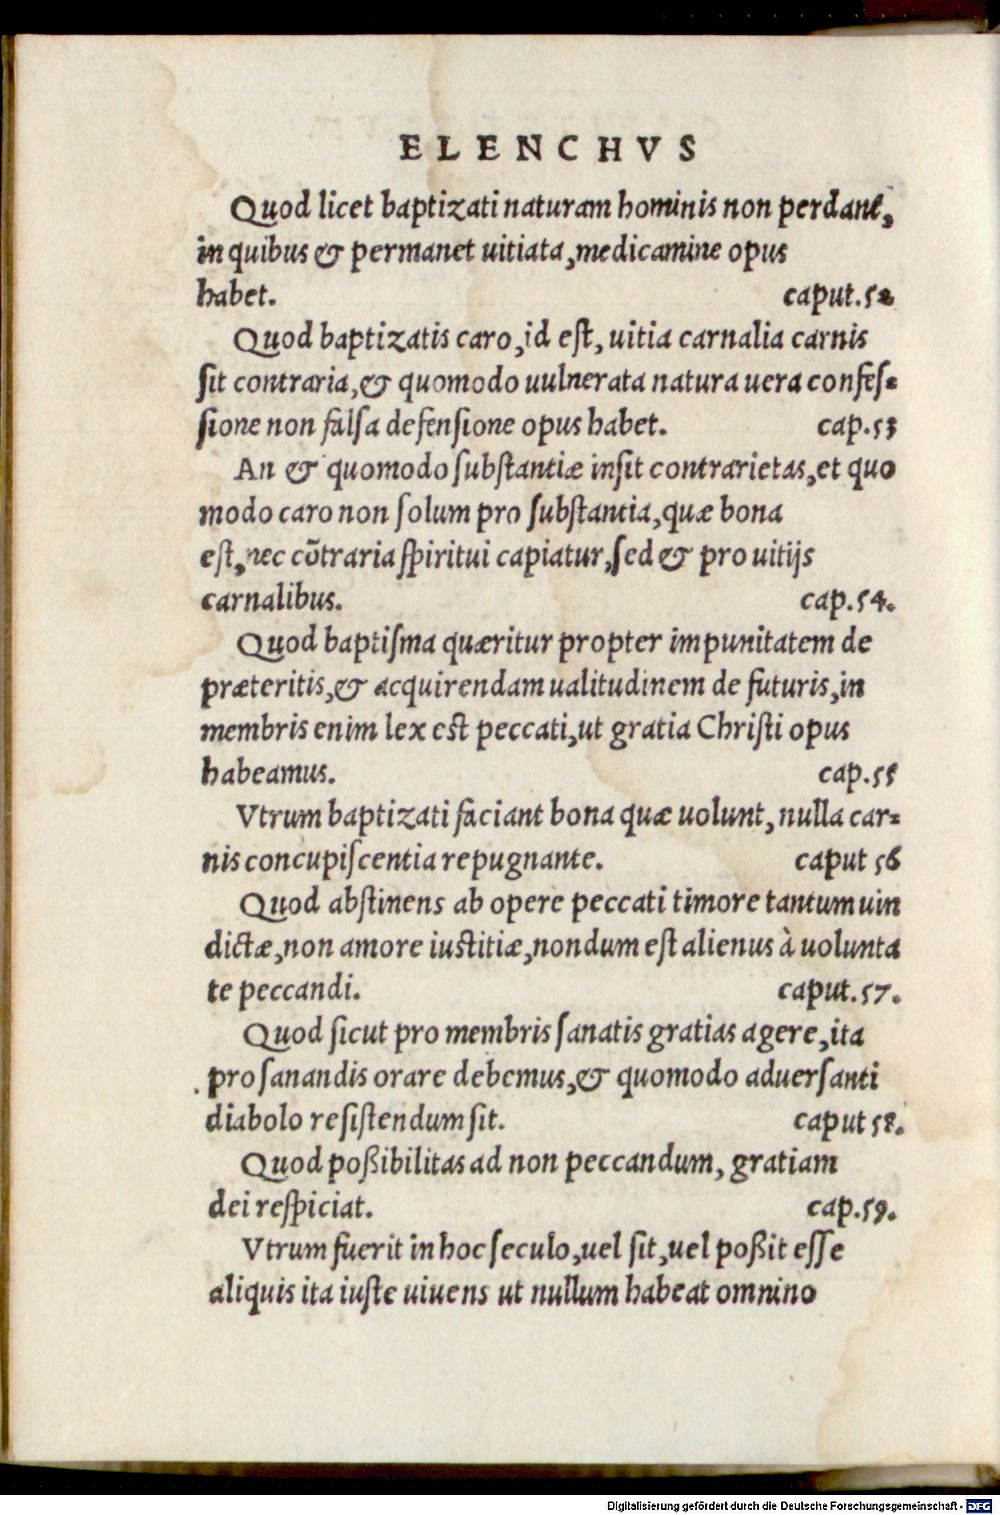 ELENCHVS
Quod licet baptizati naturam hominis non perdant,
in quibus & permanet uitiata, medicamine opus
habet. caput.52
Quod baptizatis caro, id est, uitia carnalia carnis
sit contraria, & quomodo uulnerata natura uera confes-
sione non falsa defensione opus habet. cap.53
An & quomodo substantiæ insit contrarietas, et quo
modo caro non solum pro substantia, quæ bona
est, nec cõtraria spiritui capiatur, sed & pro uitijs
carnalibus. cap.54.
Quod baptisma quæritur propter impunitatem de
præteritis, & acquirendam ualitudinem de futuris, in
membris enim lex est peccati, ut gratia Christi opus
habeamus. cap.55
Vtrum baptizati faciant bona quæ uolunt, nulla car-
nis concupiscentia repugnante. caput 56
Quod abstinens ab opere peccati timore tantum uin
dictæ, non amore iustitiæ, nondum est alienus à uolunta
te peccandi. caput.57.
Quod sicut pro membris sanatis gratias agere, ita
pro sanandis orare debemus, & quomodo aduersanti
diabolo resistendum sit. caput 58.
Quod poßibilitas ad non peccandum, gratiam
dei respiciat. cap.59.
Vtrum fuerit in hoc seculo, uel sit, uel poßit esse
aliquis ita iuste uiuens ut nullum habeat omnino
Digitalisierung gefördert durch die Deutsche Forschungsgemeinschaft - DFG